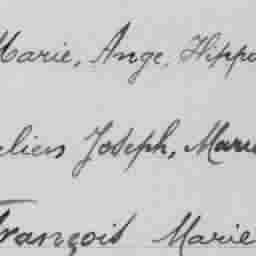 Marie, Ange, Hippo
eliers Joseph, Marie
François Marie